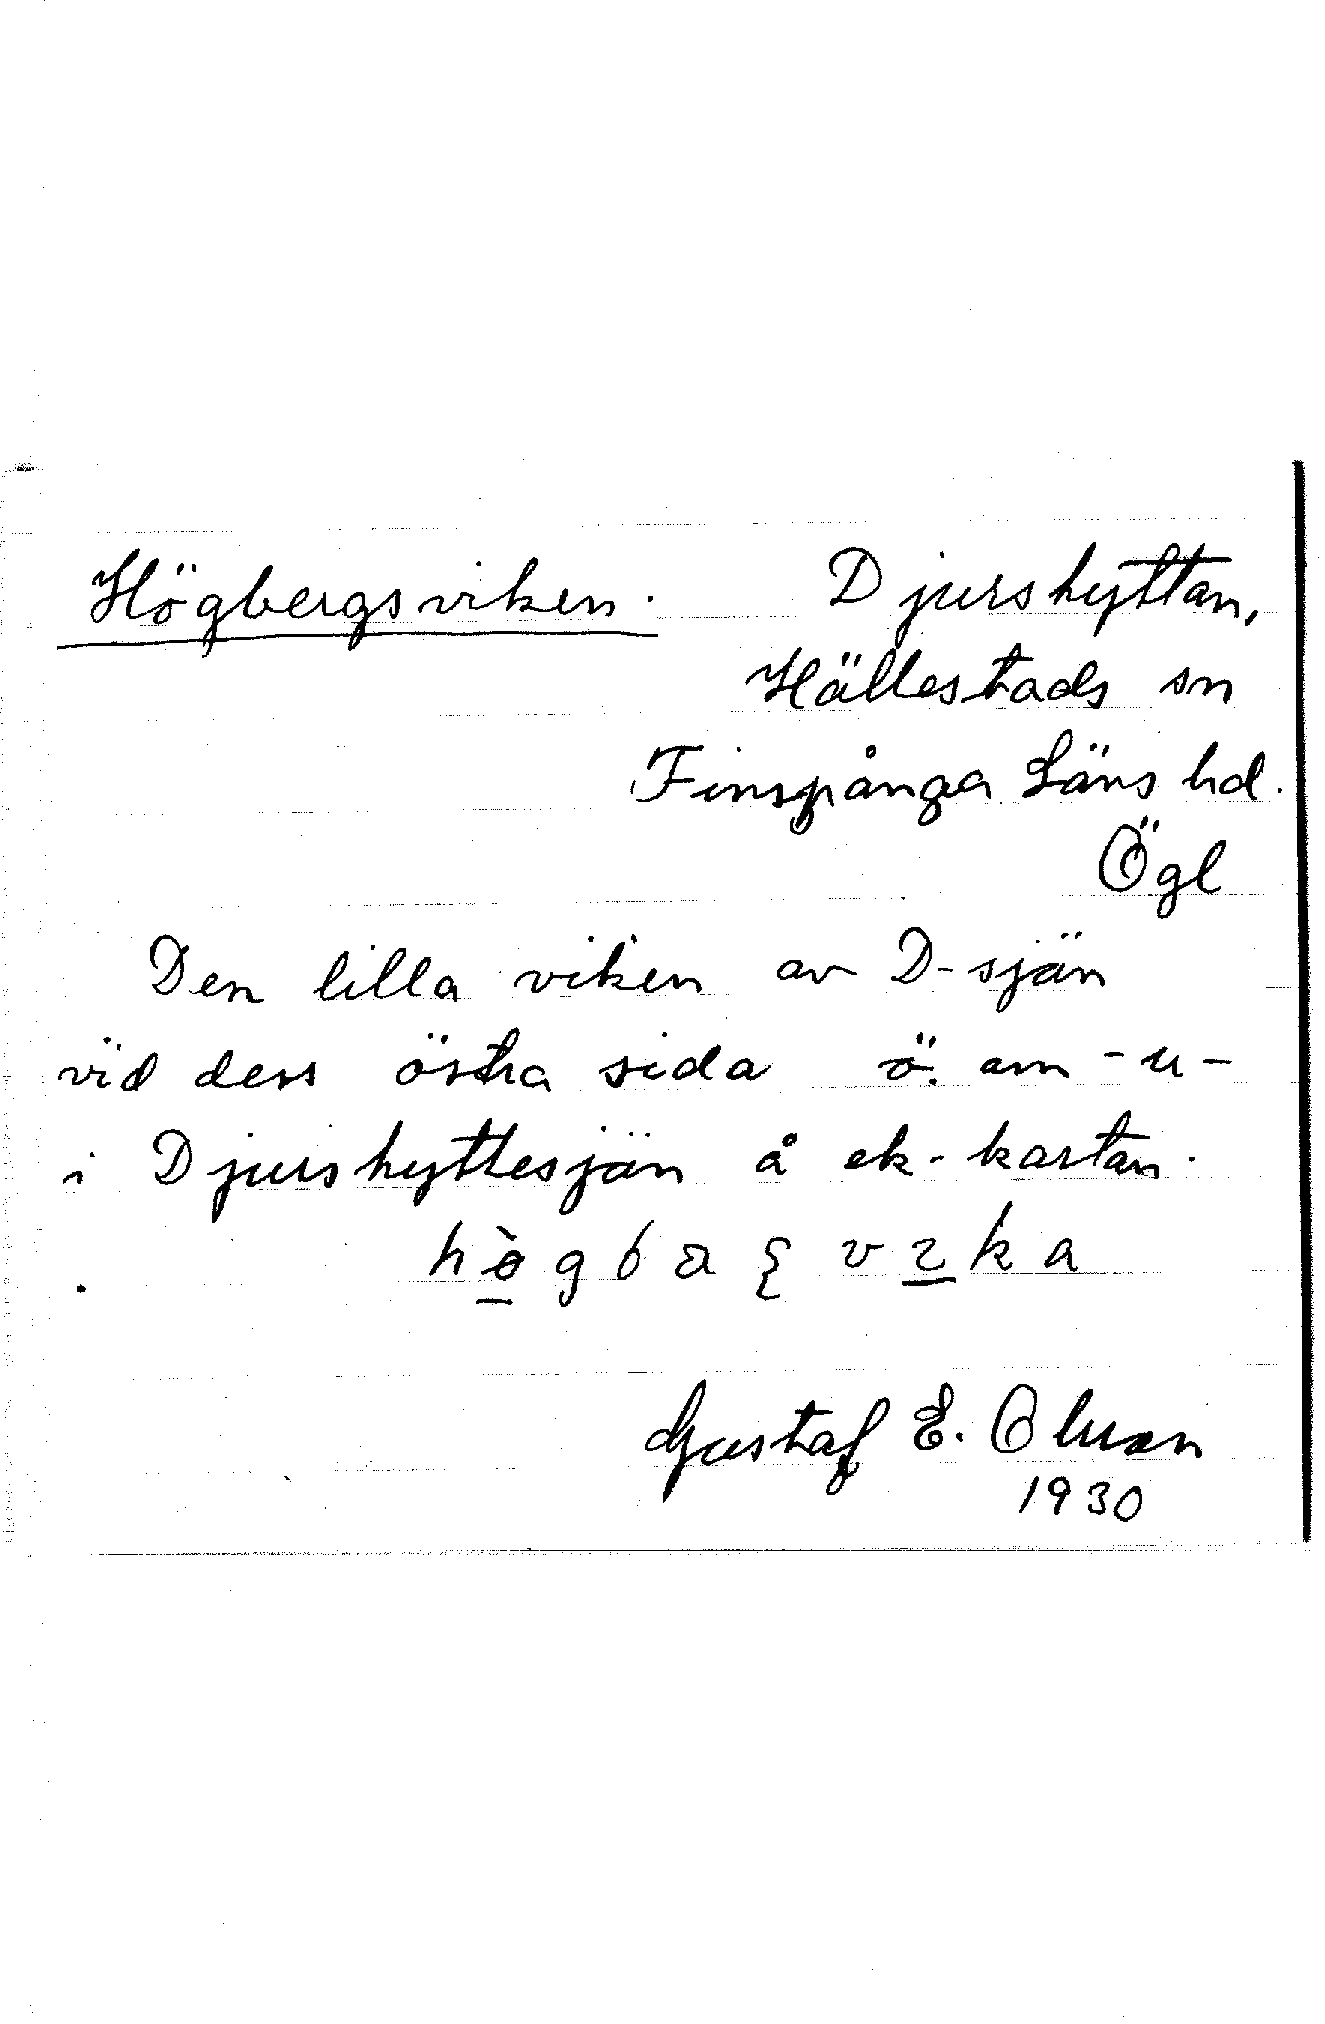 Högbergsviken. Djurshyttan,
Hällestads sn
Finspånga Läns hd.
Ögl
Den lilla viken av D-sjän
vid dess östra sida ö. om -u-
i Djurshyttesjän å ek-kartan.
Gustaf E. Olsson
1930